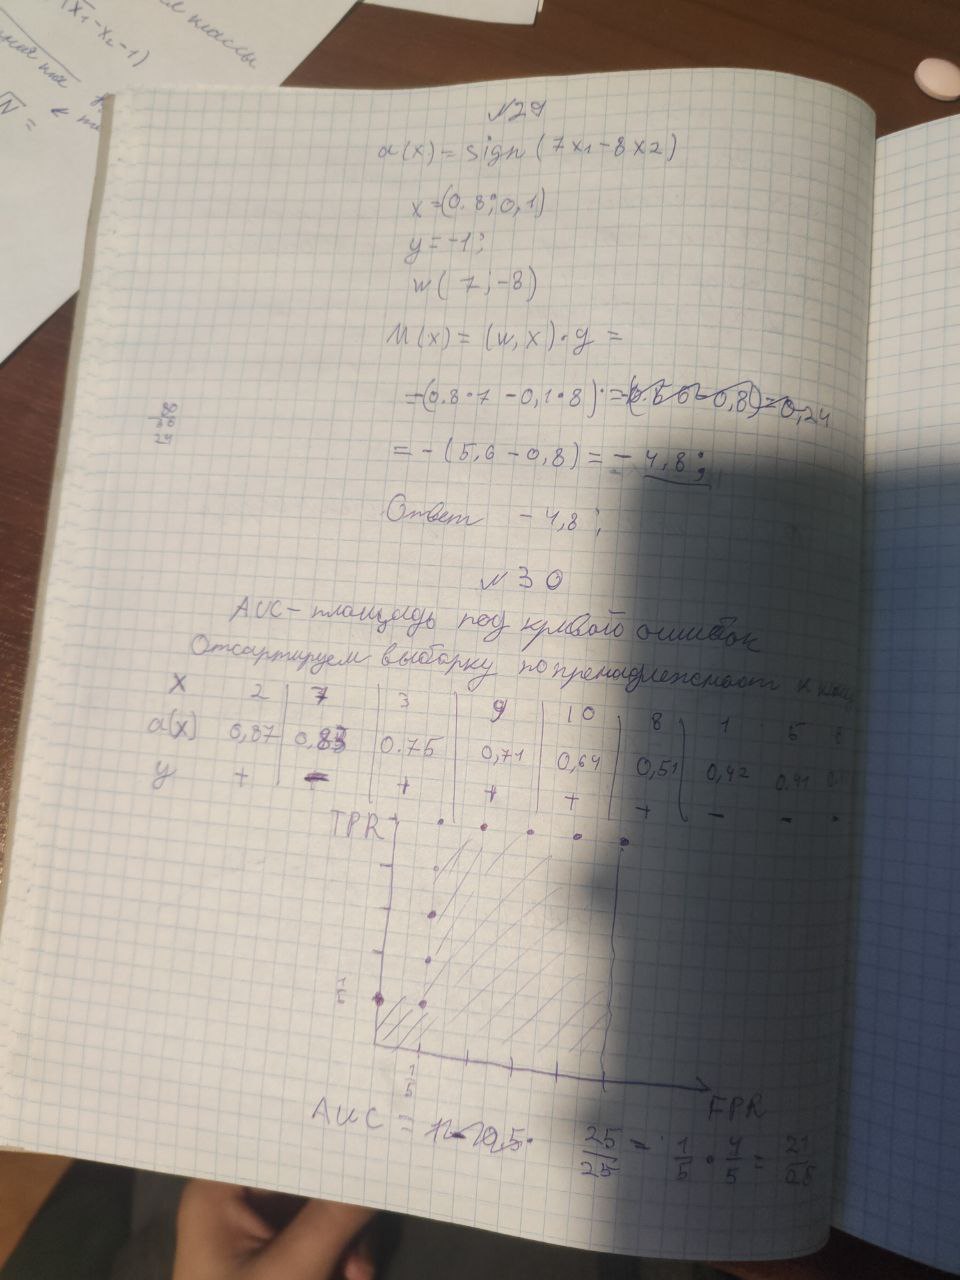 (x₁-x₂-1)
классы
N29
a(x) = sign (7x1-8x2)
x=(0.8; 0,1)
y = -1;
w( 7; -8)
M(x) = (w, x)·y =
=-(0.8·7 -0,1·8)·=
= - (5,6 -0,8) = - 4,8;
Ответ -4,8;
N30
AUC - площадь под кривой ошибок
Отсартируем выборку по
x 2 7 3 9 10 8 1 5
a(x) 0,87 0,83 0.75 0,71 0,64 0,51 0,42 0.41
y + - + + + + - -
TPR
1/5
1/5
FPR
AUC = 25/25 - 1/5 · 4/5 = 21/25